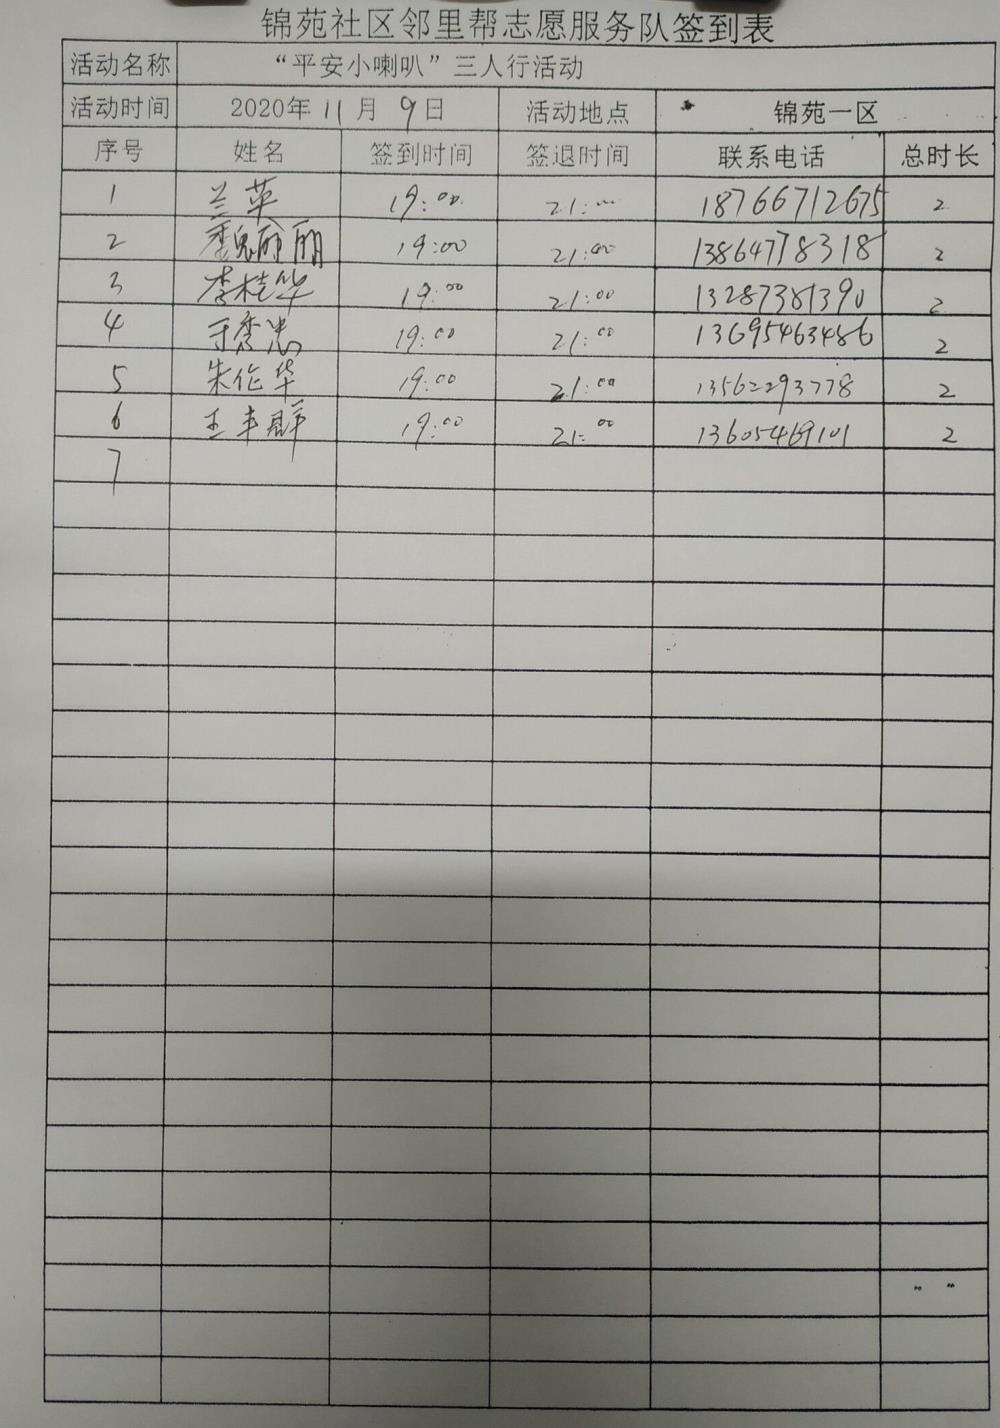 锦苑社区邻里帮志愿服务队签到表
活动名称 “平安小喇叭”三人行活动
活动时间 2020年 11 月 9 日 活动地点 锦苑一区
序号 姓名 签到时间 签退时间 联系电话 总时长
1 兰英 19:00 21:00 18766712675 2
2 魏丽丽 19:00 21:00 13864778318 2
3 李桂华 19:00 21:00 13287381390 2
4 于秀忠 19:00 21:00 13695463486 2
5 朱作华 19:00 21:00 13562293778 2
6 王丰群 19:00 21:00 13605469101 2
7